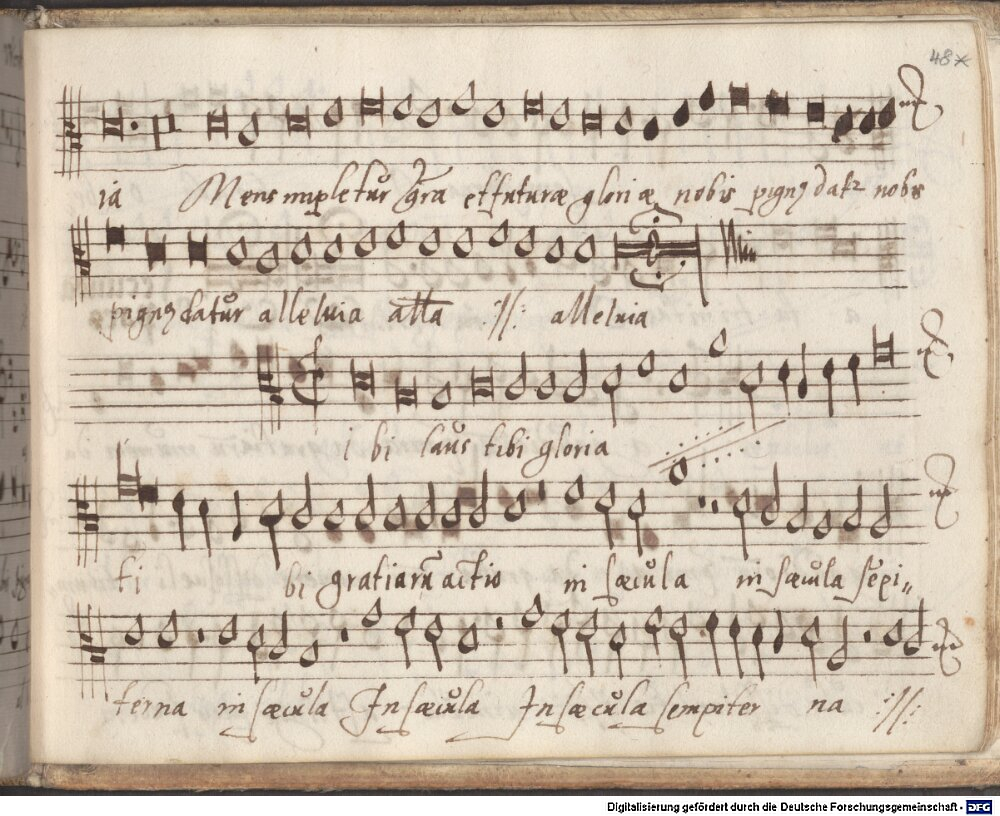 48*
ia Mens impletur gra et futuræ gloriæ nobis pignꝫ datr nobis
pignꝫ datur alleluia alla :||: alleluia
i bi laus tibi gloria
ti bi gratiarū actio in sæcula in sæcula sēpi„
terna in sæcula In sæcula In sæcula sempiter na :||:
Digitalisierung gefördert durch die Deutsche Forschungsgemeinschaft - DFG